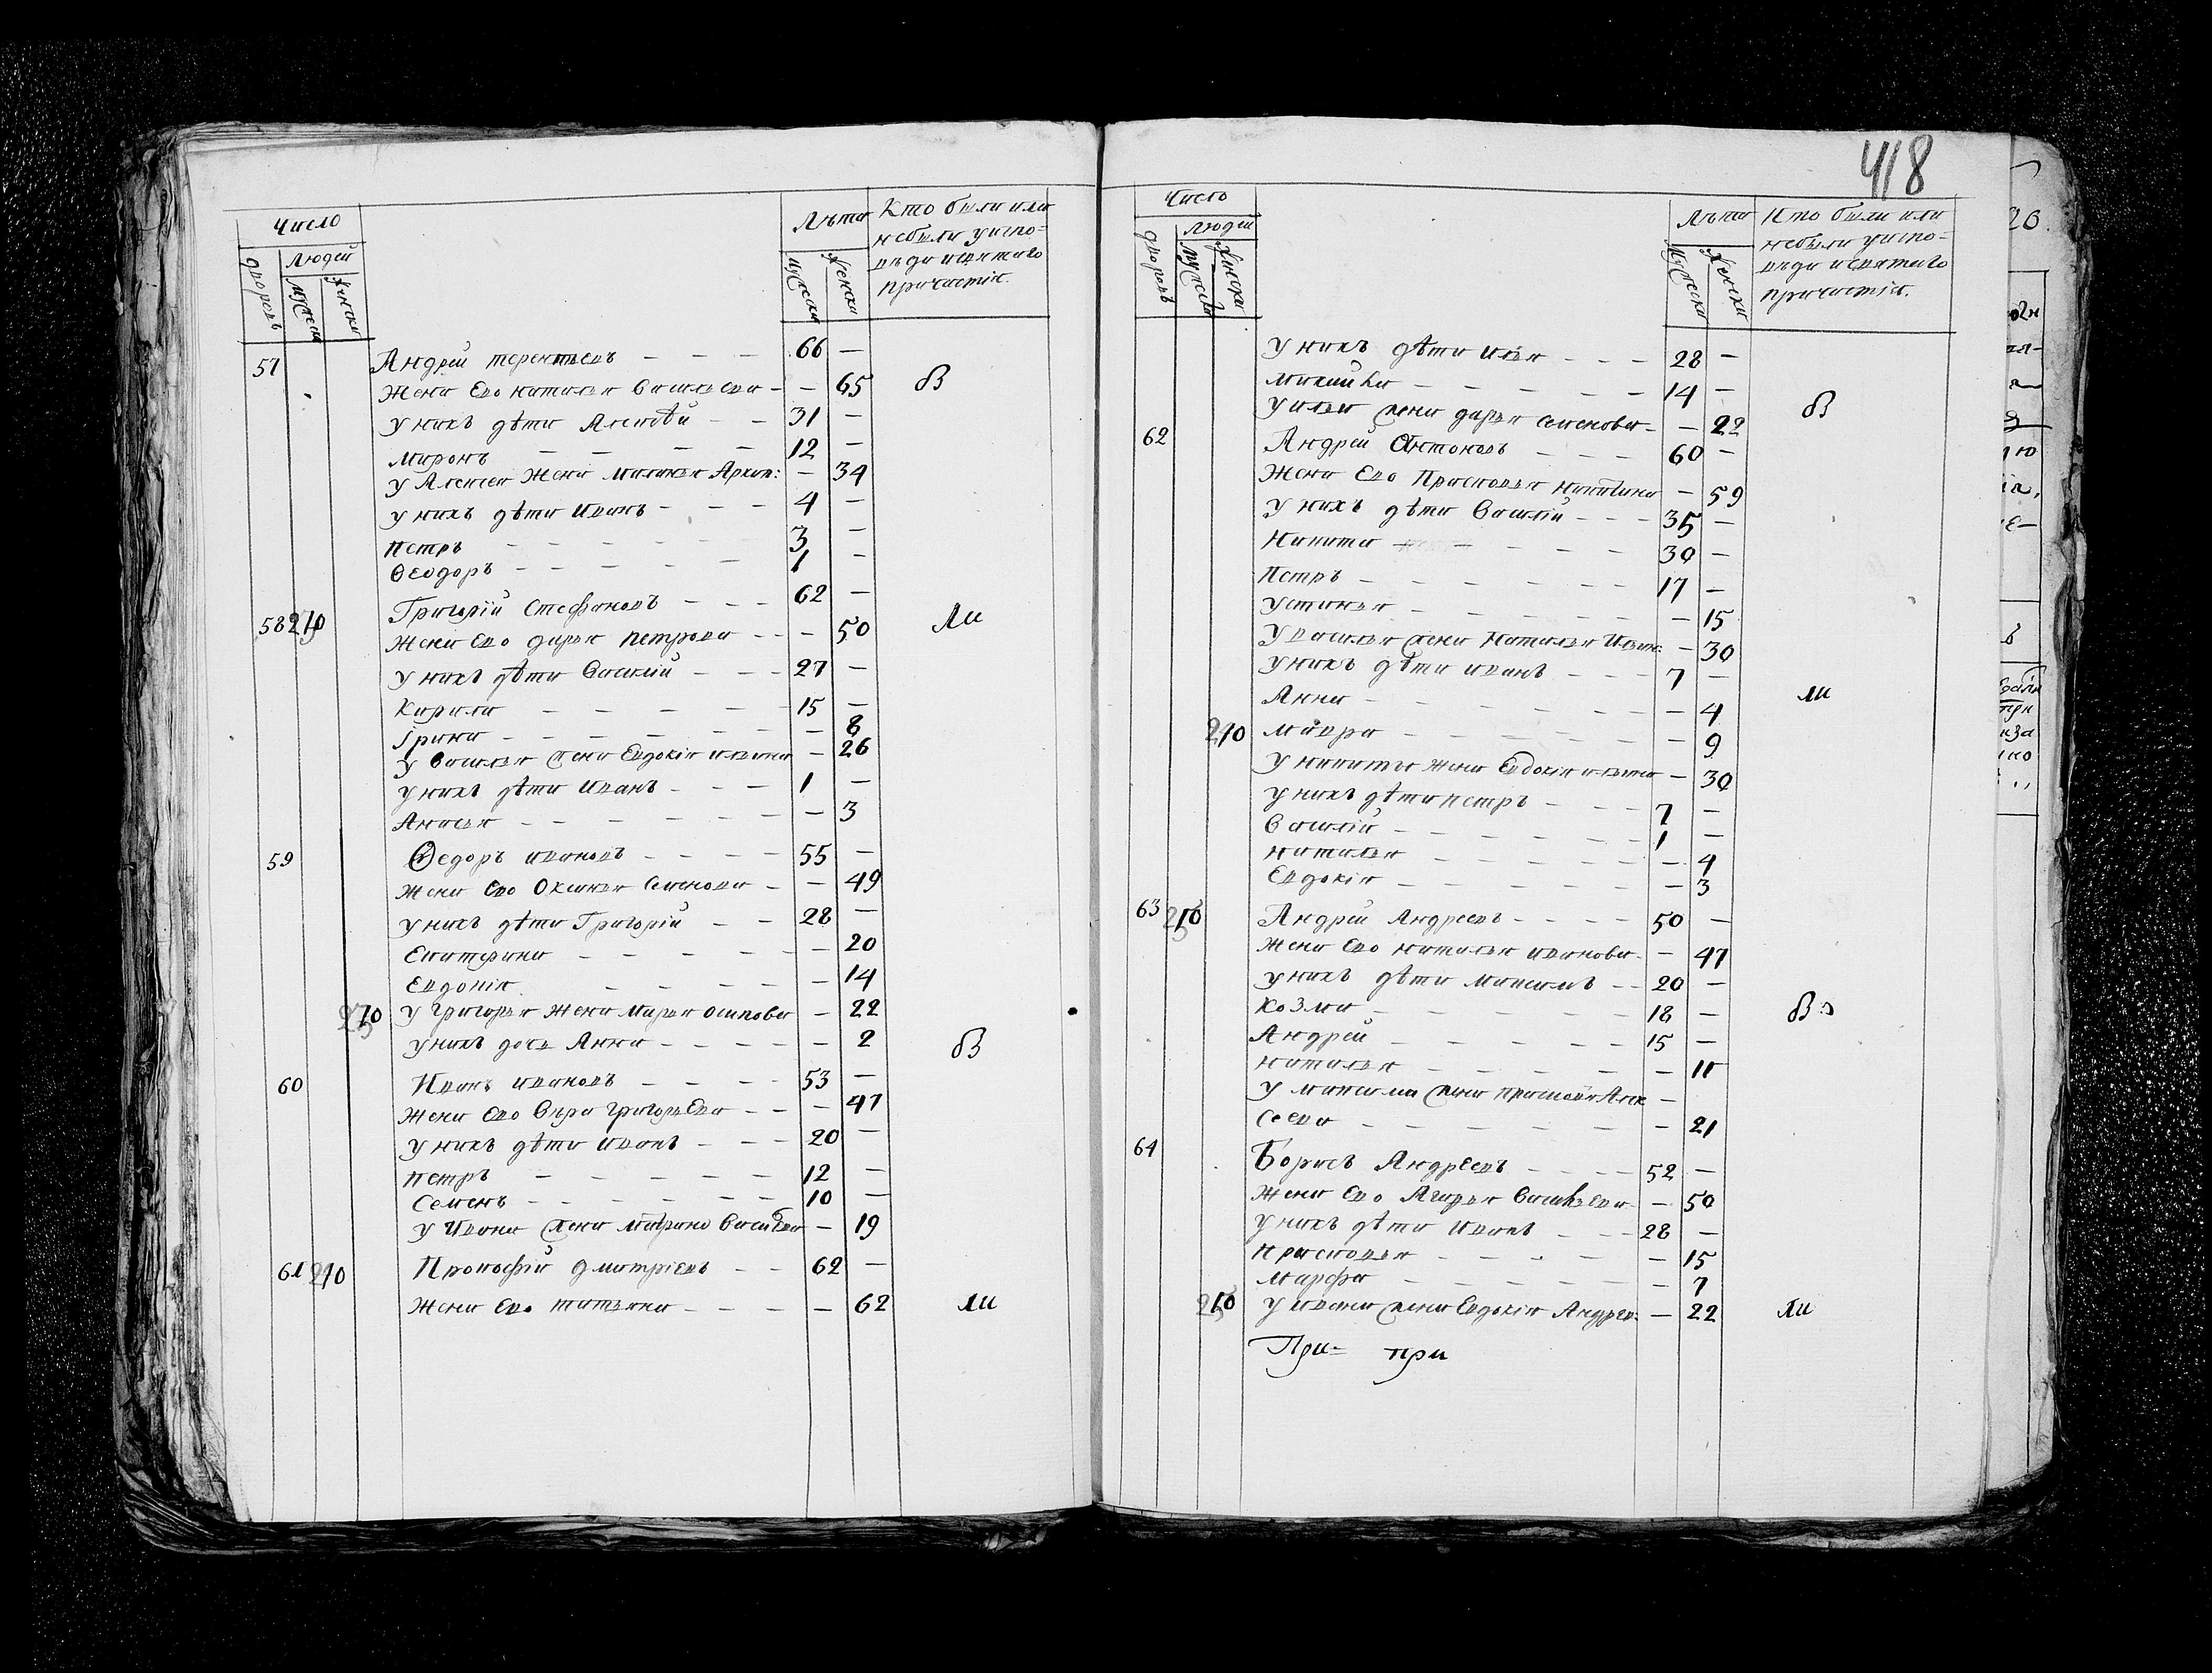 418
Число
Людей
дворовъ
Мужеска
Женска
Лѣта
Мужеска
Женска
Кто были или
небыли уиспо-
вѣди исвятаго
причастія.
57 Андрей терентьевъ — — — 66 —
Жена Ево наталья Васильева — — 65 В
у нихъ дѣти Алексѣй — — 31 —
Миронъ — — — — 12 —
у Алексея Жена Маланья Архип: — 34
у нихъ дѣти Иванъ — — — 4 —
петръ — — — — — 3 —
Ѳеодоръ — — — — — 1 —
58 210 Григорій Стефановъ — — — 62 —
Жена Ево дарья петрова — — — 50 ли
у нихъ дѣти Василій — — — 27 —
Кирила — — — — — 15 —
Ірина — — — — — — 8
у Василья жена Евдокія иванова — 26
у нихъ дѣти Иванъ — — — 1 —
Анисья — — — — — — 3
59 Ѳедоръ ивановъ — — — — 55 —
жена Ево Оксинья Семенова — — 49
у нихъ дѣти Григорій — — 28 —
Екатерина — — — — — — 20
Евдокія — — — — — 14
210 у Григорья жена Марья осипова — 22
у нихъ дочь Анна — — — — — 2 В
60 Иванъ ивановъ — — — — 53 —
жена Ево Вѣра григорьЕва — — — 47
у нихъ дѣти иванъ — — — 20 —
петръ — — — — — 12 —
Семенъ — — — — — — 10 —
у Ивана жена Матрина ВасилЕва — 19
61 210 Прокофій дмитріевъ — — 62 —
жена Ево татьяна — — — — 62 ли
Число
Людей
дворовъ
Мужеска
Женска
Лѣта
Мужеска
Женска
Кто были или
небыли уиспо-
вѣди исвятаго
причастія.
у нихъ дѣти Илья — — — 28 —
Михаила — — — — — 14 —
у ильи жена дарья семенова — — 22 В
62 Андрей Антоновъ — — — 60 —
жена Ево Прасковья никитина — 59
у нихъ дѣти Василій — — — 35 —
Никита — — — — — 30 —
петръ — — — — — — 17 —
устинья — — — — — — 15
у василья жена Наталья Иван: — 30
у нихъ дѣти иванъ — — — 7 —
Анна — — — — — — — 4 ли
210 мавра — — — — — — 9
у никиты жена Евдокія иванова — 30
у нихъ дѣти петръ — — — 7 —
Василій — — — — — — 1 —
наталья — — — — — — 4
Евдокія — — — — — — 3
63 210 Андрей Андреевъ — — — — 50 —
жена Ево наталья иванова — — 47
у нихъ дѣти максимъ — — 20 —
Козма — — — — — — 18 — В
Андрей — — — — — 15 —
наталья — — — — — — 11
у максима жена прасковья Алек —
сеева — — — — — — — 21
64 Борисъ Андреевъ — — — — 52 —
жена Ево Агафья Васильева — — 50
у нихъ дѣти иванъ — — — 28 —
прасковья — — — — — 15
Марфа — — — — — — 7
210 у ивана жена Евдокія Андрев: — 22 ли
При= при